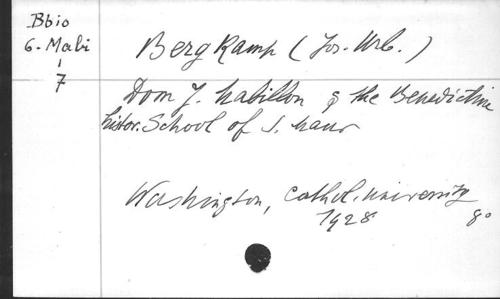 Bbio
6-Mabi
1
7
Bergkamp (Jos. Urb.)
Dom J. Mabillon & the Benedictine
histor. School of S. Maur
Washington, Cathol. University
1928 8°